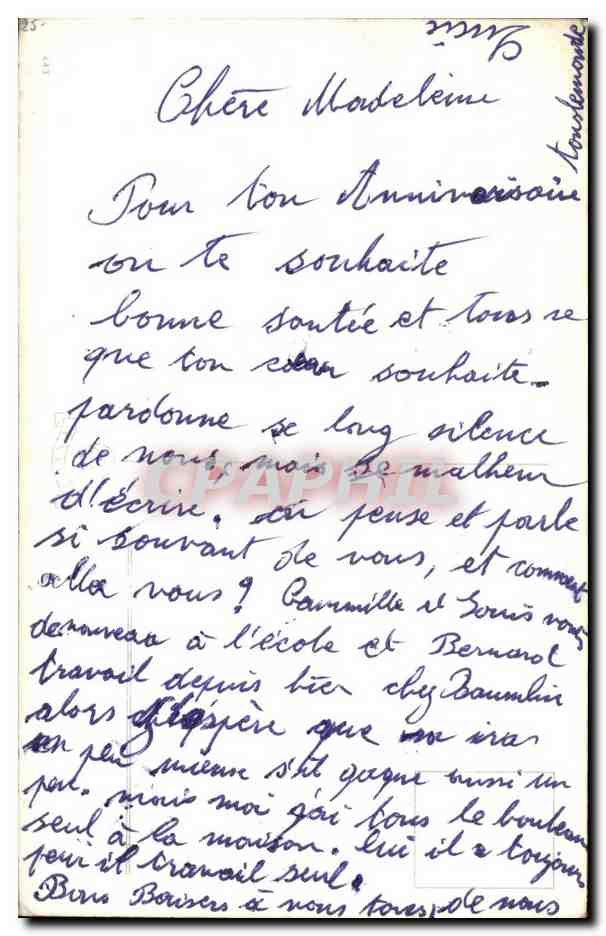 25.-
Chère Madeleine
Pour ton Anniversaire
on te souhaite
bonne santée et tous se
que ton cœur souhaite.
pardonne se long silence
de nous, mais se malheur
d'écrire. on pense et parle
si souvant de vous, et comment
alle vous? Cammille et Louis vont
de nouveau à l'école et Bernard
travail depuis hier chez Baumlin
alors j'éspère que sa iras
un peu mieux s'il gagne aussi un
peu. mais moi j'ai tous le bouleau
seul à la maison. lui il a toujours
peur il travail seul.
Bons Baisers à vous tous, de nous
touslemonde
CPAPHIL